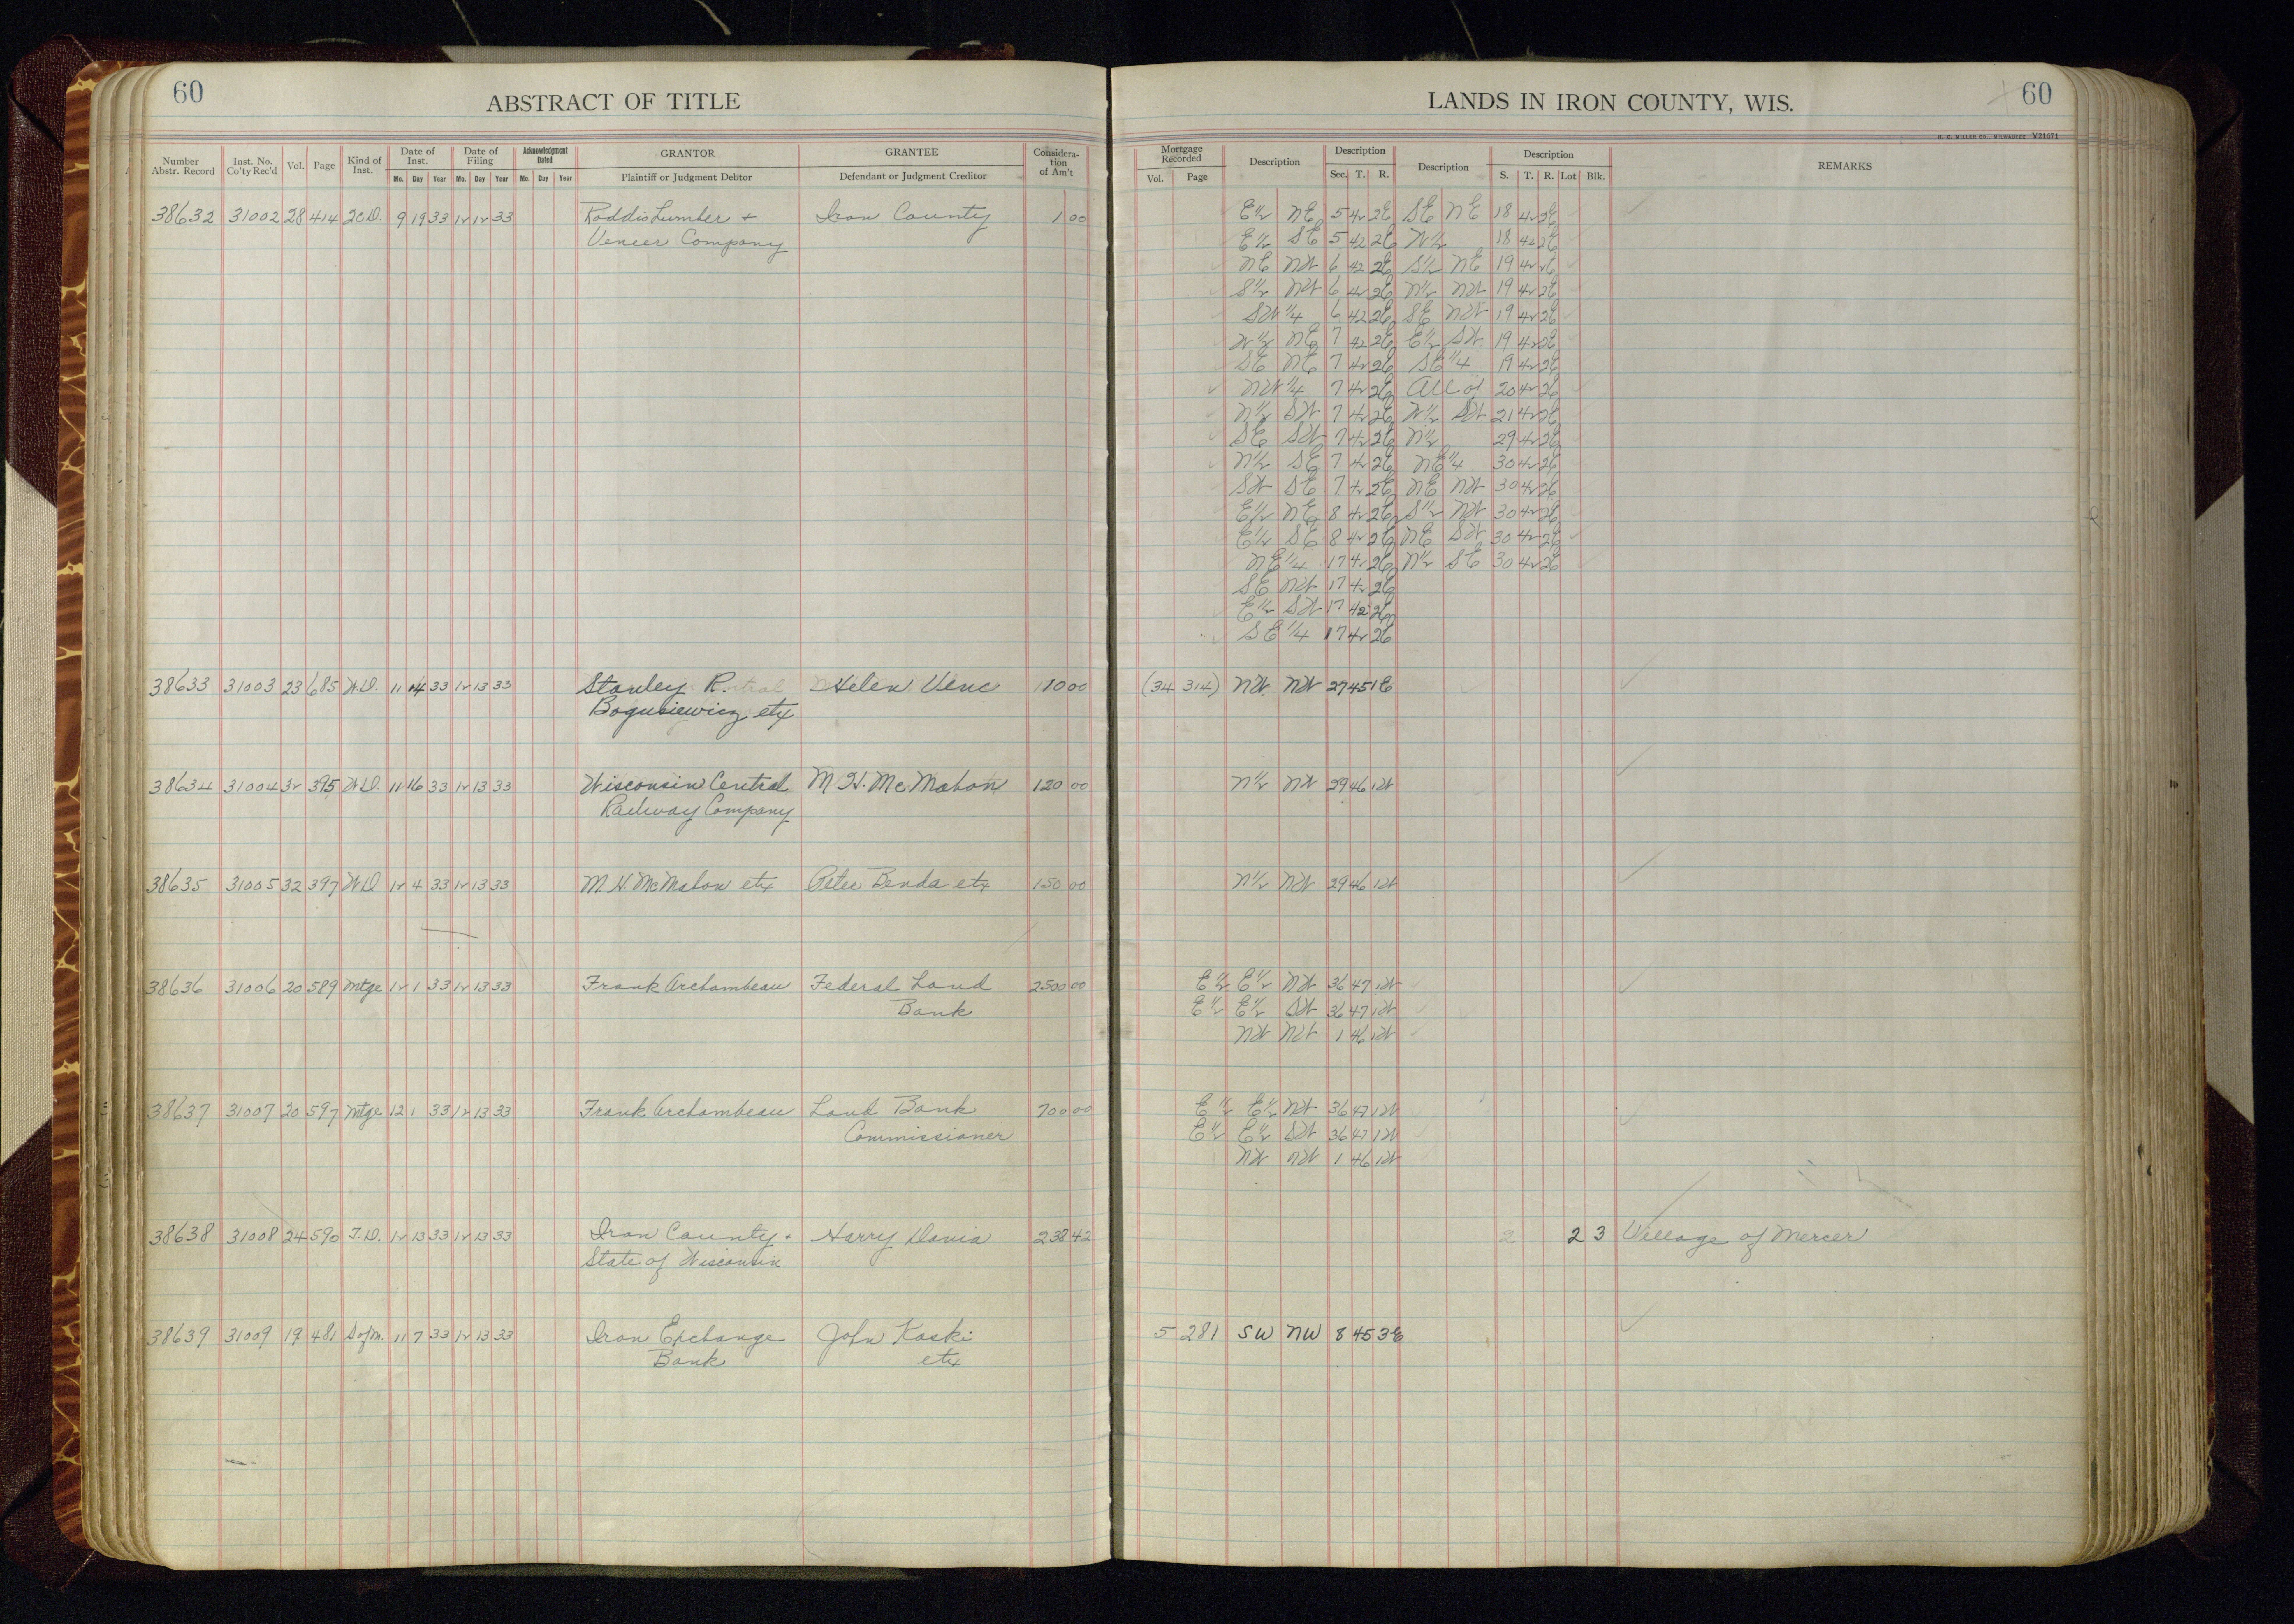 60
ABSTRACT OF TITLE
Number Abstr. Record | Inst. No. Co'ty Rec'd | Vol. | Page | Kind of Inst. | Date of Inst. Mo. Day Year | Date of Filing Mo. Day Year | Acknowledgment Dated Mo. Day Year | GRANTOR Plaintiff or Judgment Debtor | GRANTEE Defendant or Judgment Creditor | Consideration of Am't
38632 31002 28 414 2CD. 9 19 33 12 12 33 Roddis Lumber + Iron County 1 00
Veneer Company
38633 31003 23 685 W.D. 11 14 33 12 13 33 Stanley R. Helen Venc 110 00
Bogusiewicz etx
38634 31004 32 395 W.D. 11 16 33 12 13 33 Wisconsin Central M. H. McMahon 120 00
Railway Company
38635 31005 32 397 W.D 12 4 33 12 13 33 M. H. McMahon etx Peter Benda etx 150 00
38636 31006 20 589 Mtge 12 1 33 12 13 33 Frank Archambeau Federal Land 2500 00
Bank
38637 31007 20 597 Mtge 12 1 33 12 13 33 Frank Archambeau Land Bank 700 00
Commissioner
38638 31008 24 590 T.D. 12 13 33 12 13 33 Iron County + Harry Davis 238 42
State of Wisconsin
38639 31009 19 481 S of M. 11 7 33 12 13 33 Iron Exchange John Koski
Bank etx
LANDS IN IRON COUNTY, WIS.
60
H. C. MILLER CO., MILWAUKEE Y21671
Mortgage Recorded Vol. Page | Description | Description Sec. T. R. | Description | Description S. T. R. Lot Blk. | REMARKS
E½ NE 5 42 2E SE NE 18 42 2E
E½ SE 5 42 2E W½ 18 42 2E
NE NW 6 42 2E S½ NE 19 42 2E
S½ NW 6 42 2E N½ NW 19 42 2E
SW¼ 6 42 2E SE NW 19 42 2E
W½ NE 7 42 2E E½ SW 19 42 2E
SE NE 7 42 2E SE¼ 19 42 2E
NW¼ 7 42 2E All of 20 42 2E
N½ SW 7 42 2E W½ SW 21 42 2E
SE SW 7 42 2E N½ 29 42 2E
N½ SE 7 42 2E NE¼ 30 42 2E
SW SE 7 42 2E NE NW 30 42 2E
E½ NE 8 42 2E S½ NW 30 42 2E
E½ SE 8 42 2E NE SW 30 42 2E
NE¼ 17 42 2E N½ SE 30 42 2E
SE NW 17 42 2E
E½ SW 17 42 2E
SE¼ 17 42 2E
(34 314) NW NW 27 45 1E
N½ NW 29 46 1W
N½ NW 29 46 1W
E½ E½ NW 36 47 1W
E½ E½ SW 36 47 1W
NW NW 1 46 1W
E½ E½ NW 36 47 1W
E½ E½ SW 36 47 1W
NW NW 1 46 1W
2 2 3 Village of Mercer
5 281 SW NW 8 45 3E